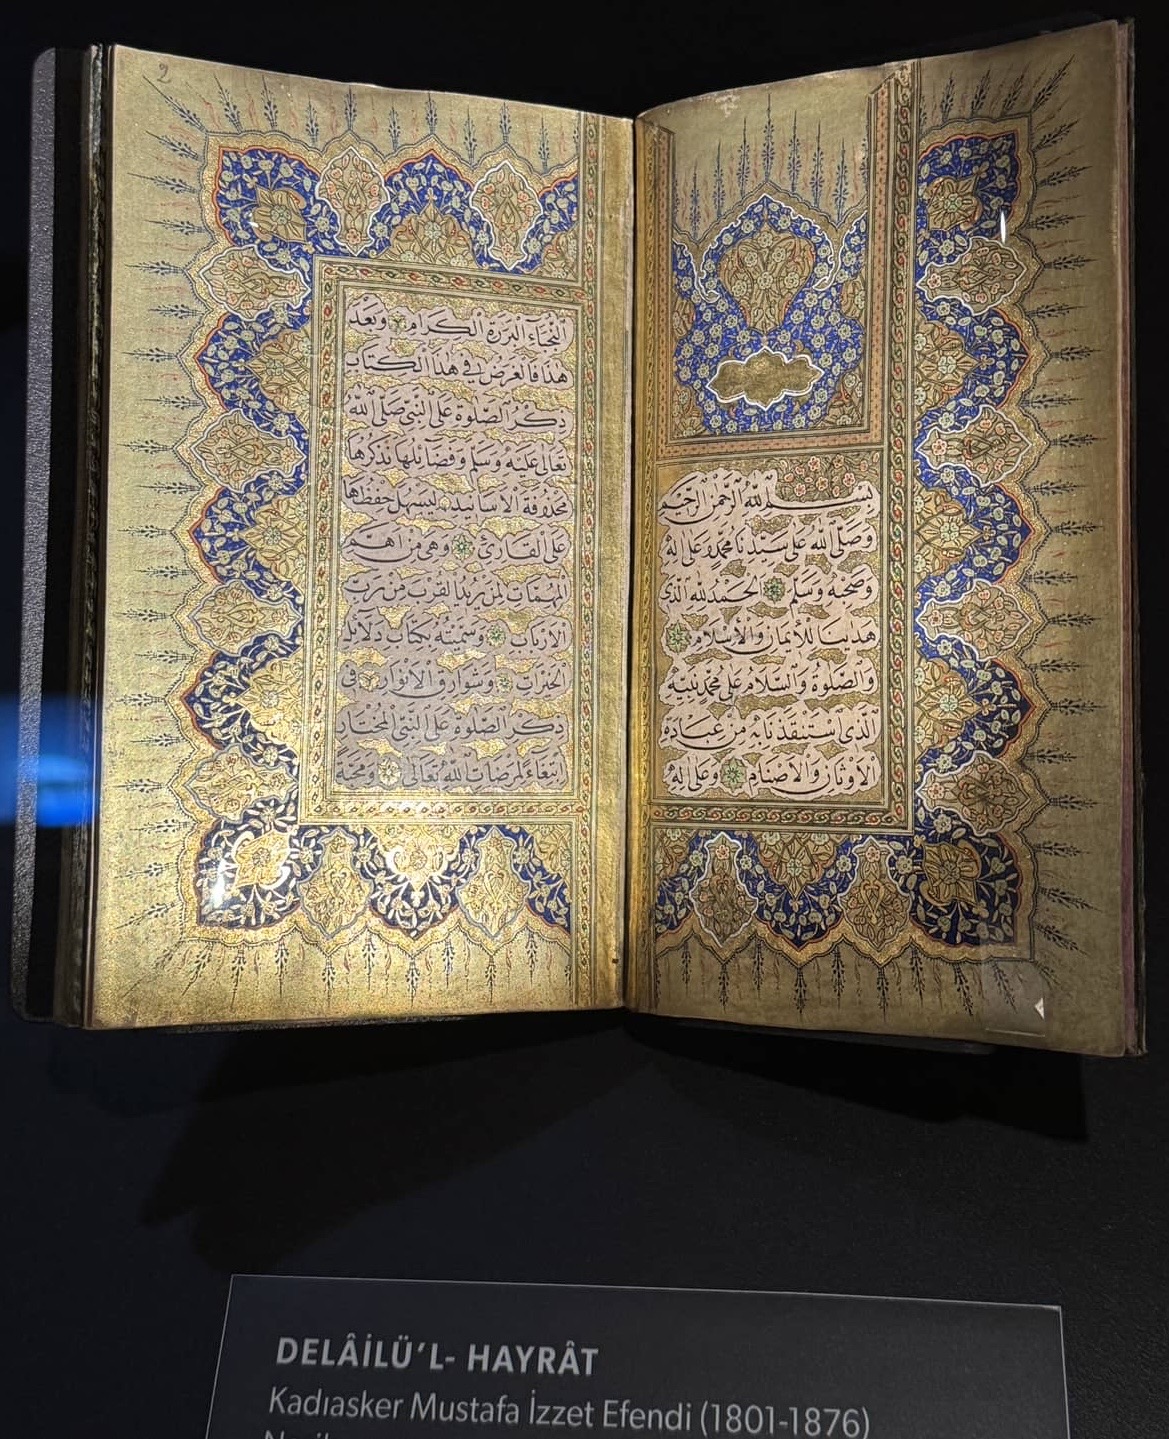 بِسْمِ اللّٰهِ الرَّحْمٰنِ الرَّحِيمِ
وَصَلَّى اللّٰهُ عَلَى سَيِّدِنَا مُحَمَّدٍ وَعَلَى اٰلِهِ
وَصَحْبِهِ وَسَلَّمَ اَلْحَمْدُ لِلّٰهِ الَّذِى
هَدٰينَا لِلْاِيمَانِ وَالْاِسْلَامِ
وَالصَّلٰوةُ وَالسَّلَامُ عَلَى مُحَمَّدٍ نَبِيِّهِ
الَّذِى اسْتَنْقَذَنَا بِهِ مِنْ عِبَادَةِ
الْاَوْثَانِ وَالْاَصْنَامِ وَعَلَى اٰلِهِ
النُّجَبَاءِ الْبَرَرَةِ الْكِرَامِ وَبَعْدَ
هٰذَا فَالْغَرَضُ فِى هٰذَا الْكِتَابِ
ذِكْرُ الصَّلٰوةِ عَلَى النَّبِىِّ صَلَّى اللّٰهُ
تَعَالٰى عَلَيْهِ وَسَلَّمَ وَفَضَائِلِهَا نَذْكُرُهَا
مَحْذُوفَةَ الْاَسَانِيدِ لِيَسْهُلَ حِفْظُهَا
عَلَى الْقَارِئِ وَهِىَ مِنْ اَهَمِّ
الْمُهِمَّاتِ لِمَنْ يُرِيدُ الْقُرْبَ مِنْ رَبِّ
الْاَرْبَابِ وَسَمَّيْتُهُ بِكِتَابِ دَلَائِلِ
الْخَيْرَاتِ وَشَوَارِقِ الْاَنْوَارِ فِى
ذِكْرِ الصَّلٰوةِ عَلَى النَّبِىِّ الْمُخْتَارِ
اِبْتِغَاءً لِمَرْضَاتِ اللّٰهِ تَعَالٰى وَمَحَبَّةً
2
DELÂİLÜ’L- HAYRÂT
Kadıasker Mustafa İzzet Efendi (1801-1876)